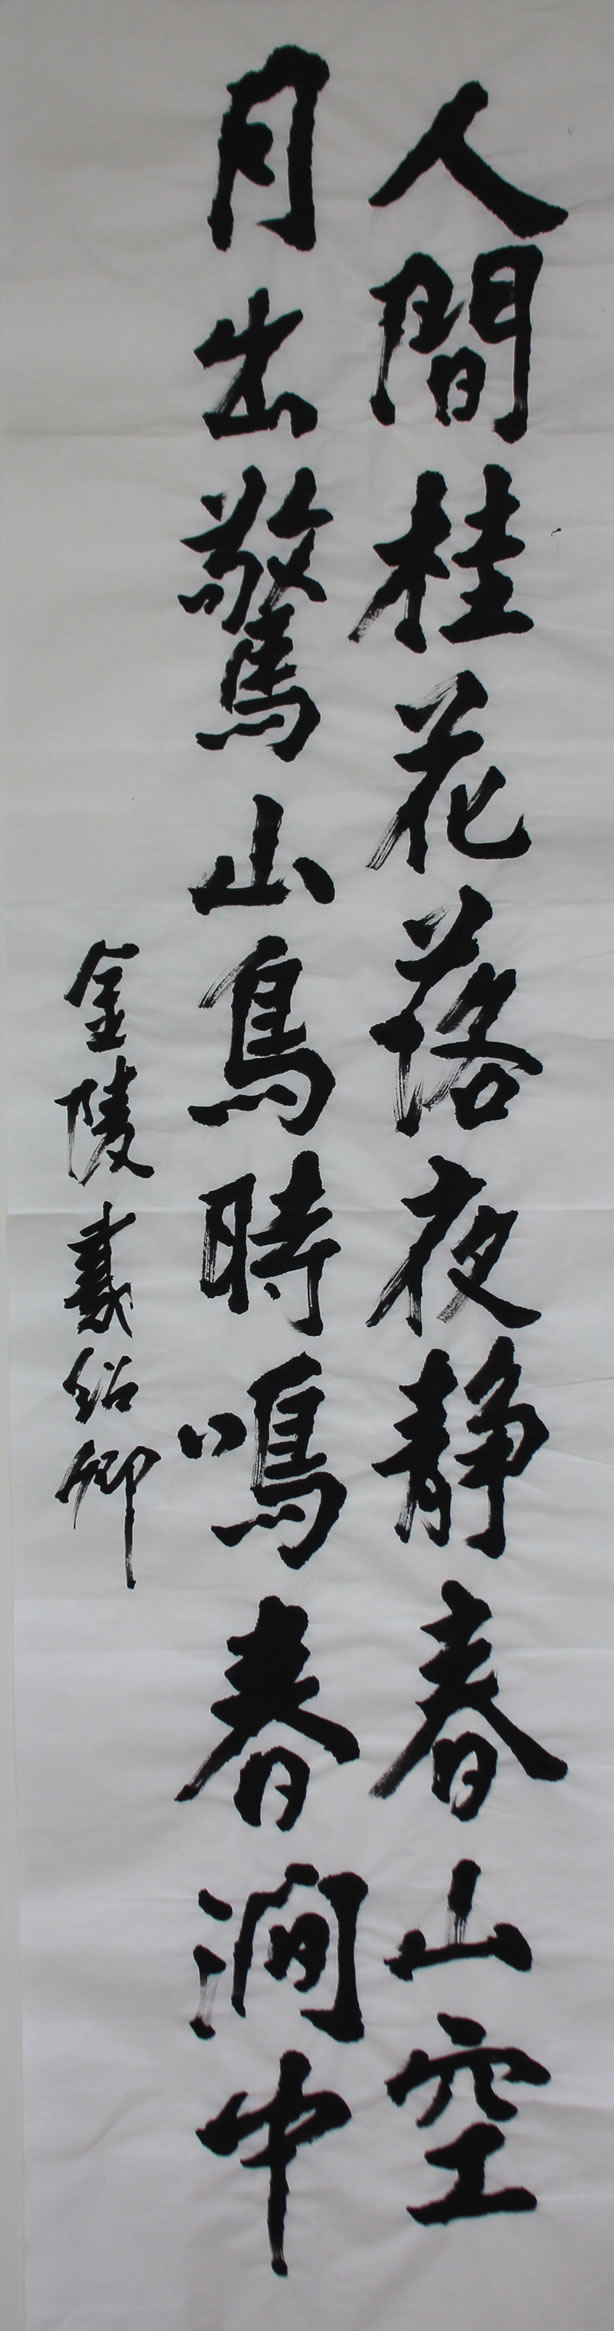 人間桂花落夜静春山空
月出驚山鳥時鳴春澗中
金陵袁紹卿